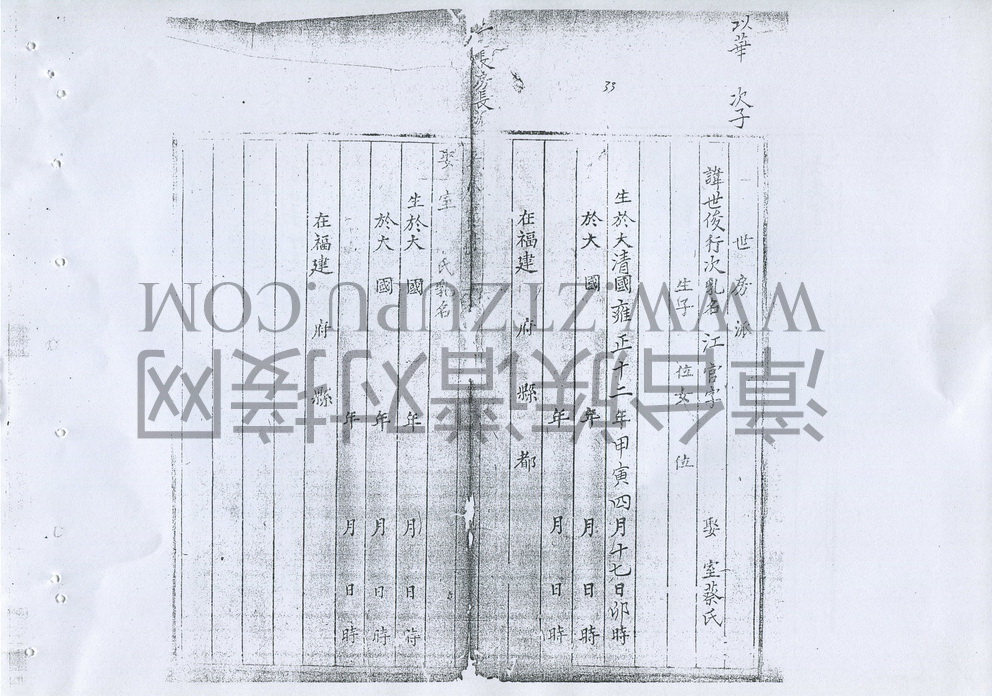 玖華 次子
33
世 房 派
諱世俊行次乳名 江官字 娶 室蔡氏
生子 位女 位
生於大清國雍正十二年甲寅四月十七日卯時
於大 國 年 月 日 時
年 月 日 時
在福建 府 縣 都
長房長
娶 室 氏乳名
生於大 國 年 月 日 時
於大 國 年 月 日 時
年 月 日 時
在福建 府 縣
WWW.ZTZUPU.COM
漳台族谱对接网